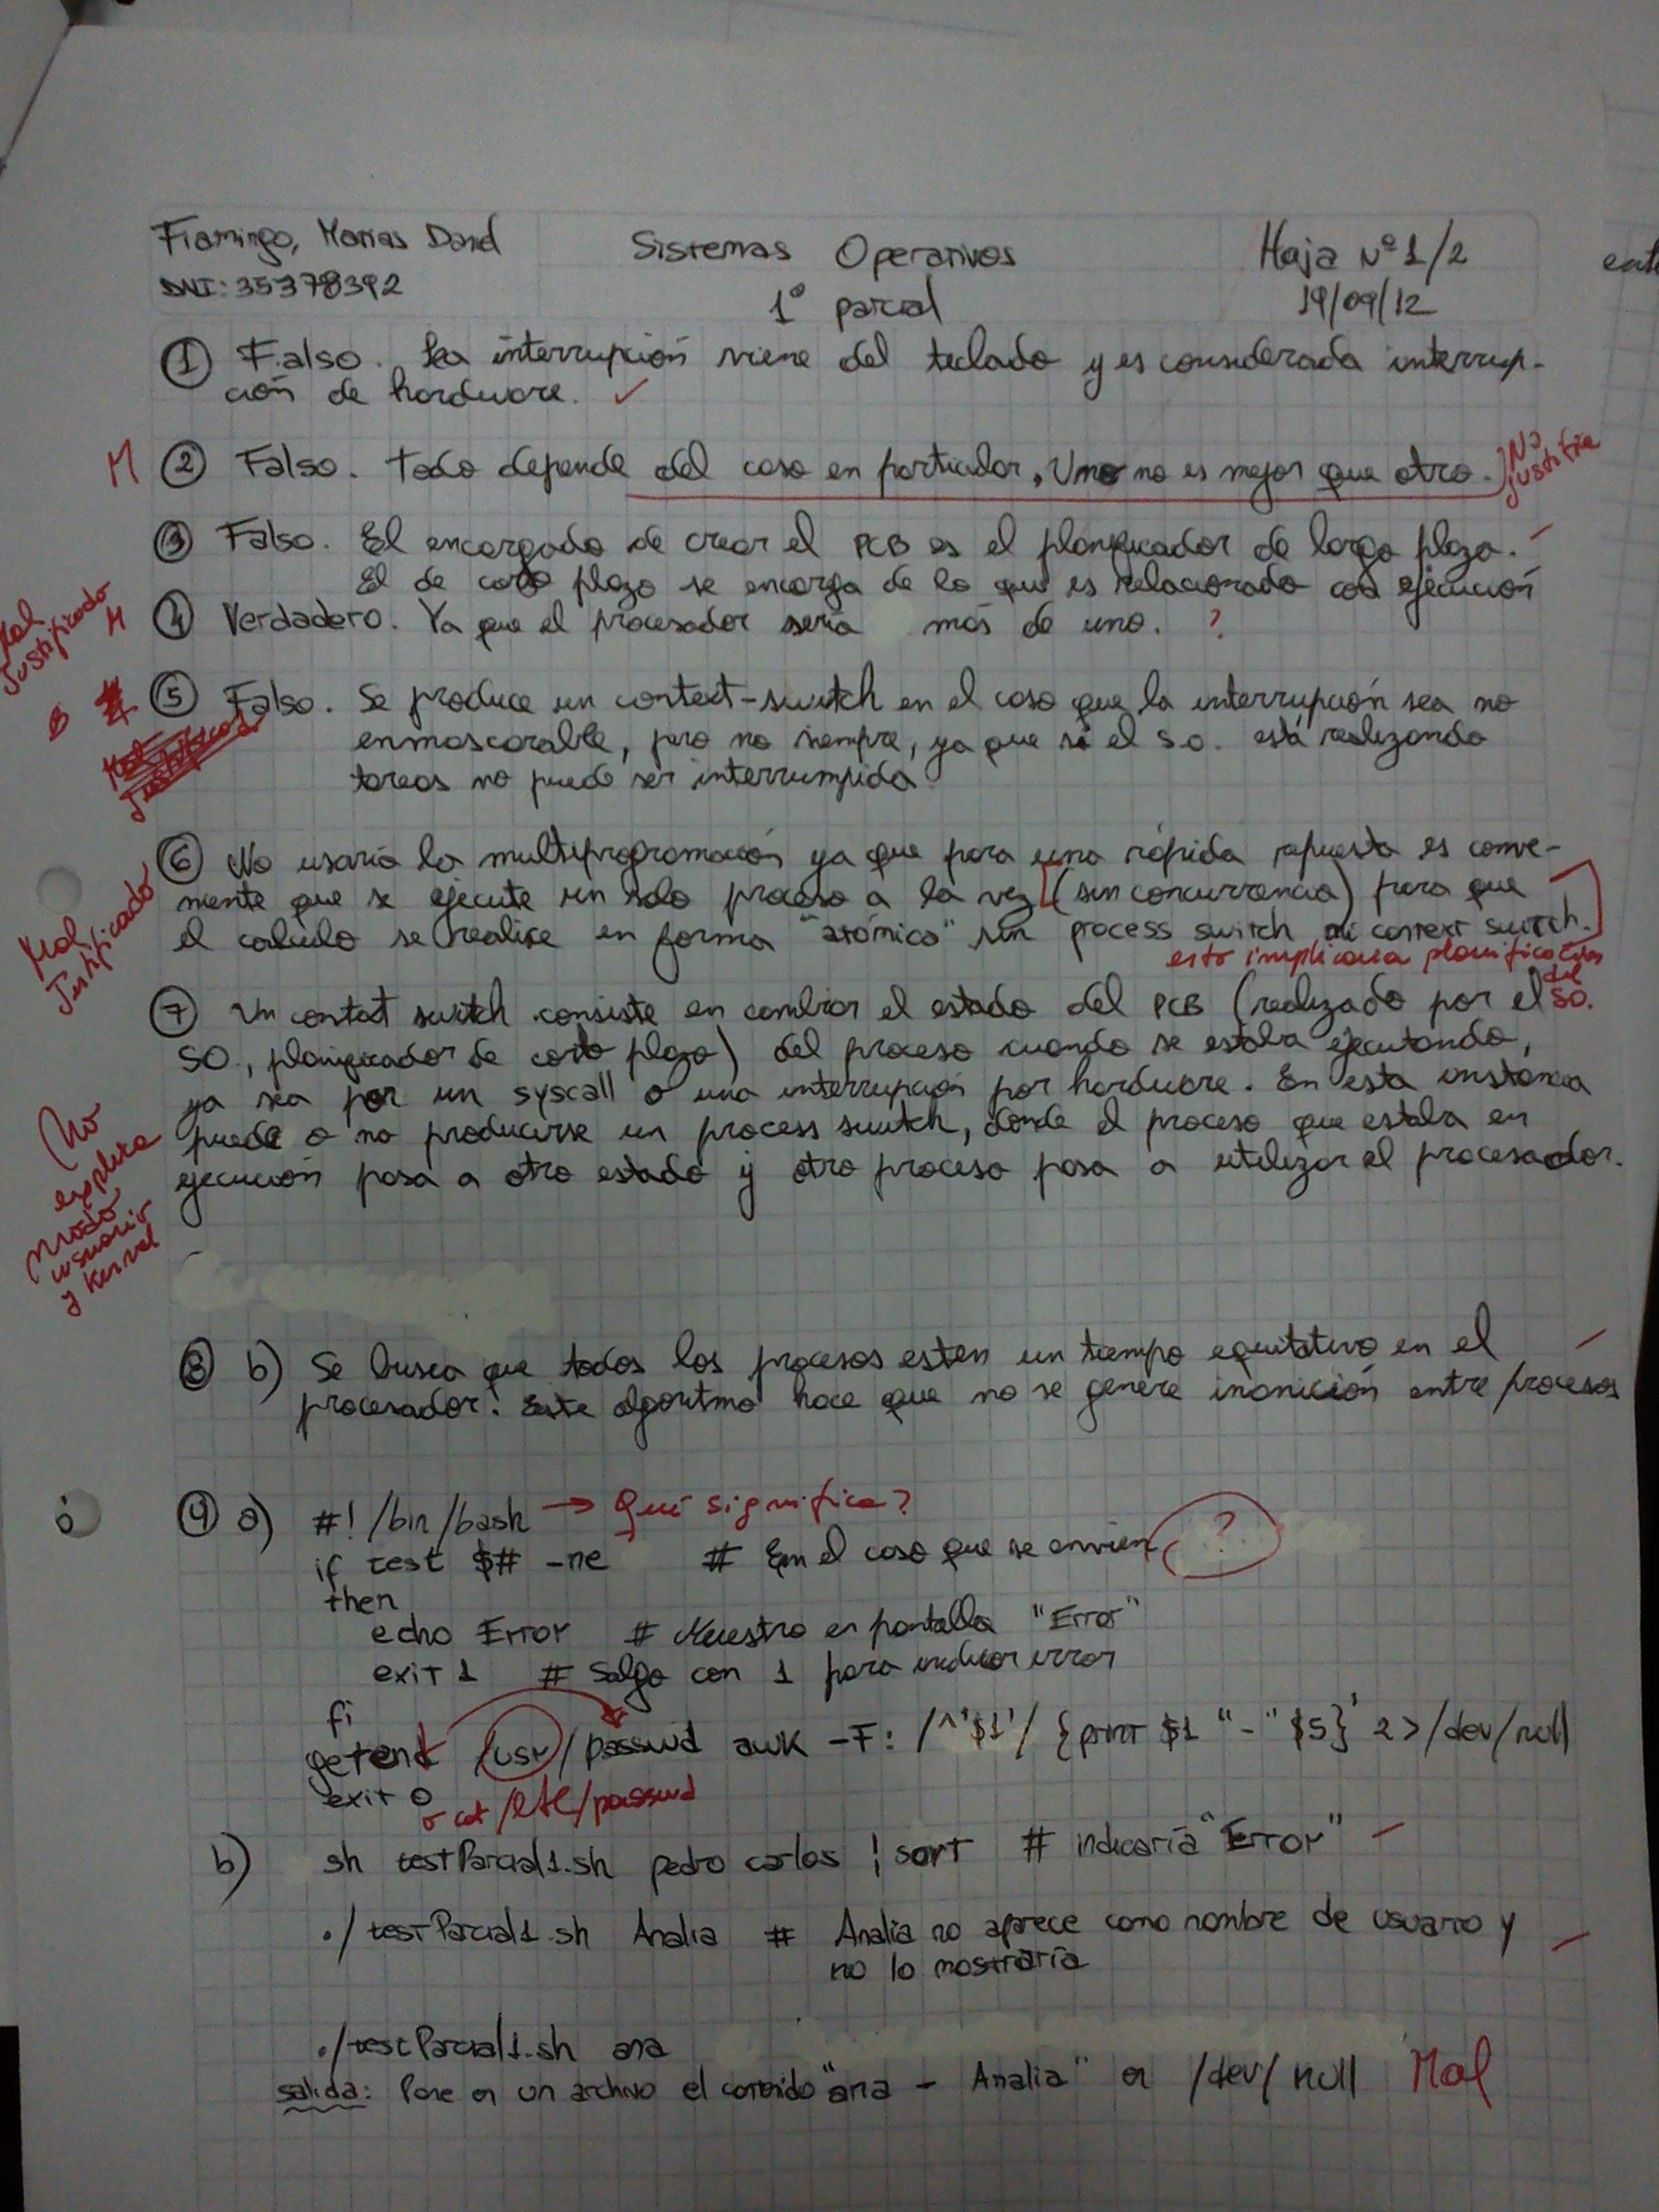 Fiamingo, Matías David
Sistemas Operativos
Hoja Nº 1/2
DNI: 35378392
1º parcial
19/09/12
① Falso. La interrupción viene del teclado y es considerada interrup-
ción de hardware. ✓
M ② Falso. Todo depende del caso en particular, Uno no es mejor que otro.
No justifica
③ Falso. El encargado de crear el PCB es el planificador de largo plazo.
El de corto plazo se encarga de lo que es relacionado con ejecución
Mal Justificado M
④ Verdadero. Ya que el procesador sería más de uno. ?
B
⑤ Falso. Se produce un context-switch en el caso que la interrupción sea no
enmascarable, pero no siempre, ya que si el S.O. está realizando
tareas no puede ser interrumpida
Mal Justificado
⑥ No usaría la multiprogramación ya que para una rápida respuesta es conve-
niente que se ejecute un solo proceso a la vez (sin concurrencia) para que
el calculo se realice en forma "atómica" sin process switch ni context switch.
esto implicaria planificación del SO.
⑦ Un context switch consiste en cambiar el estado del PCB (realizado por el
SO, planificador de corto plazo) del proceso cuando se estaba ejecutando,
ya sea por un syscall o una interrupción por hardware. En esta instancia
puede o no producirse un process switch, donde el proceso que estaba en
ejecución pasa a otro estado y otro proceso pasa a utilizar el procesador.
No explica modo usuario y Kernel
⑧ b) Se busca que todos los procesos esten un tiempo equitativo en el
procesador. Este algoritmo hace que no se genere inanición entre procesos
⑨ a) #! /bin/bash → Qué significa?
if test $# -ne # En el caso que se envien ?
then
echo Error # Muestro en pantalla "Error"
exit 1 # Salgo con 1 para indicar error
fi
getent /usr/passwd awk -F: /^'$1'/ {print $1 "-" $5}' 2>/dev/null
exit 0
o cat /etc/passwd
b) sh testParcial1.sh pedro carlos | sort # indicaría "Error"
./testParcial1.sh Analia # Analía no aparece como nombre de usuario y
no lo mostraría
./testParcial1.sh ana
salida: Pone en un archivo el contenido "ana - Analia" en /dev/null Mal